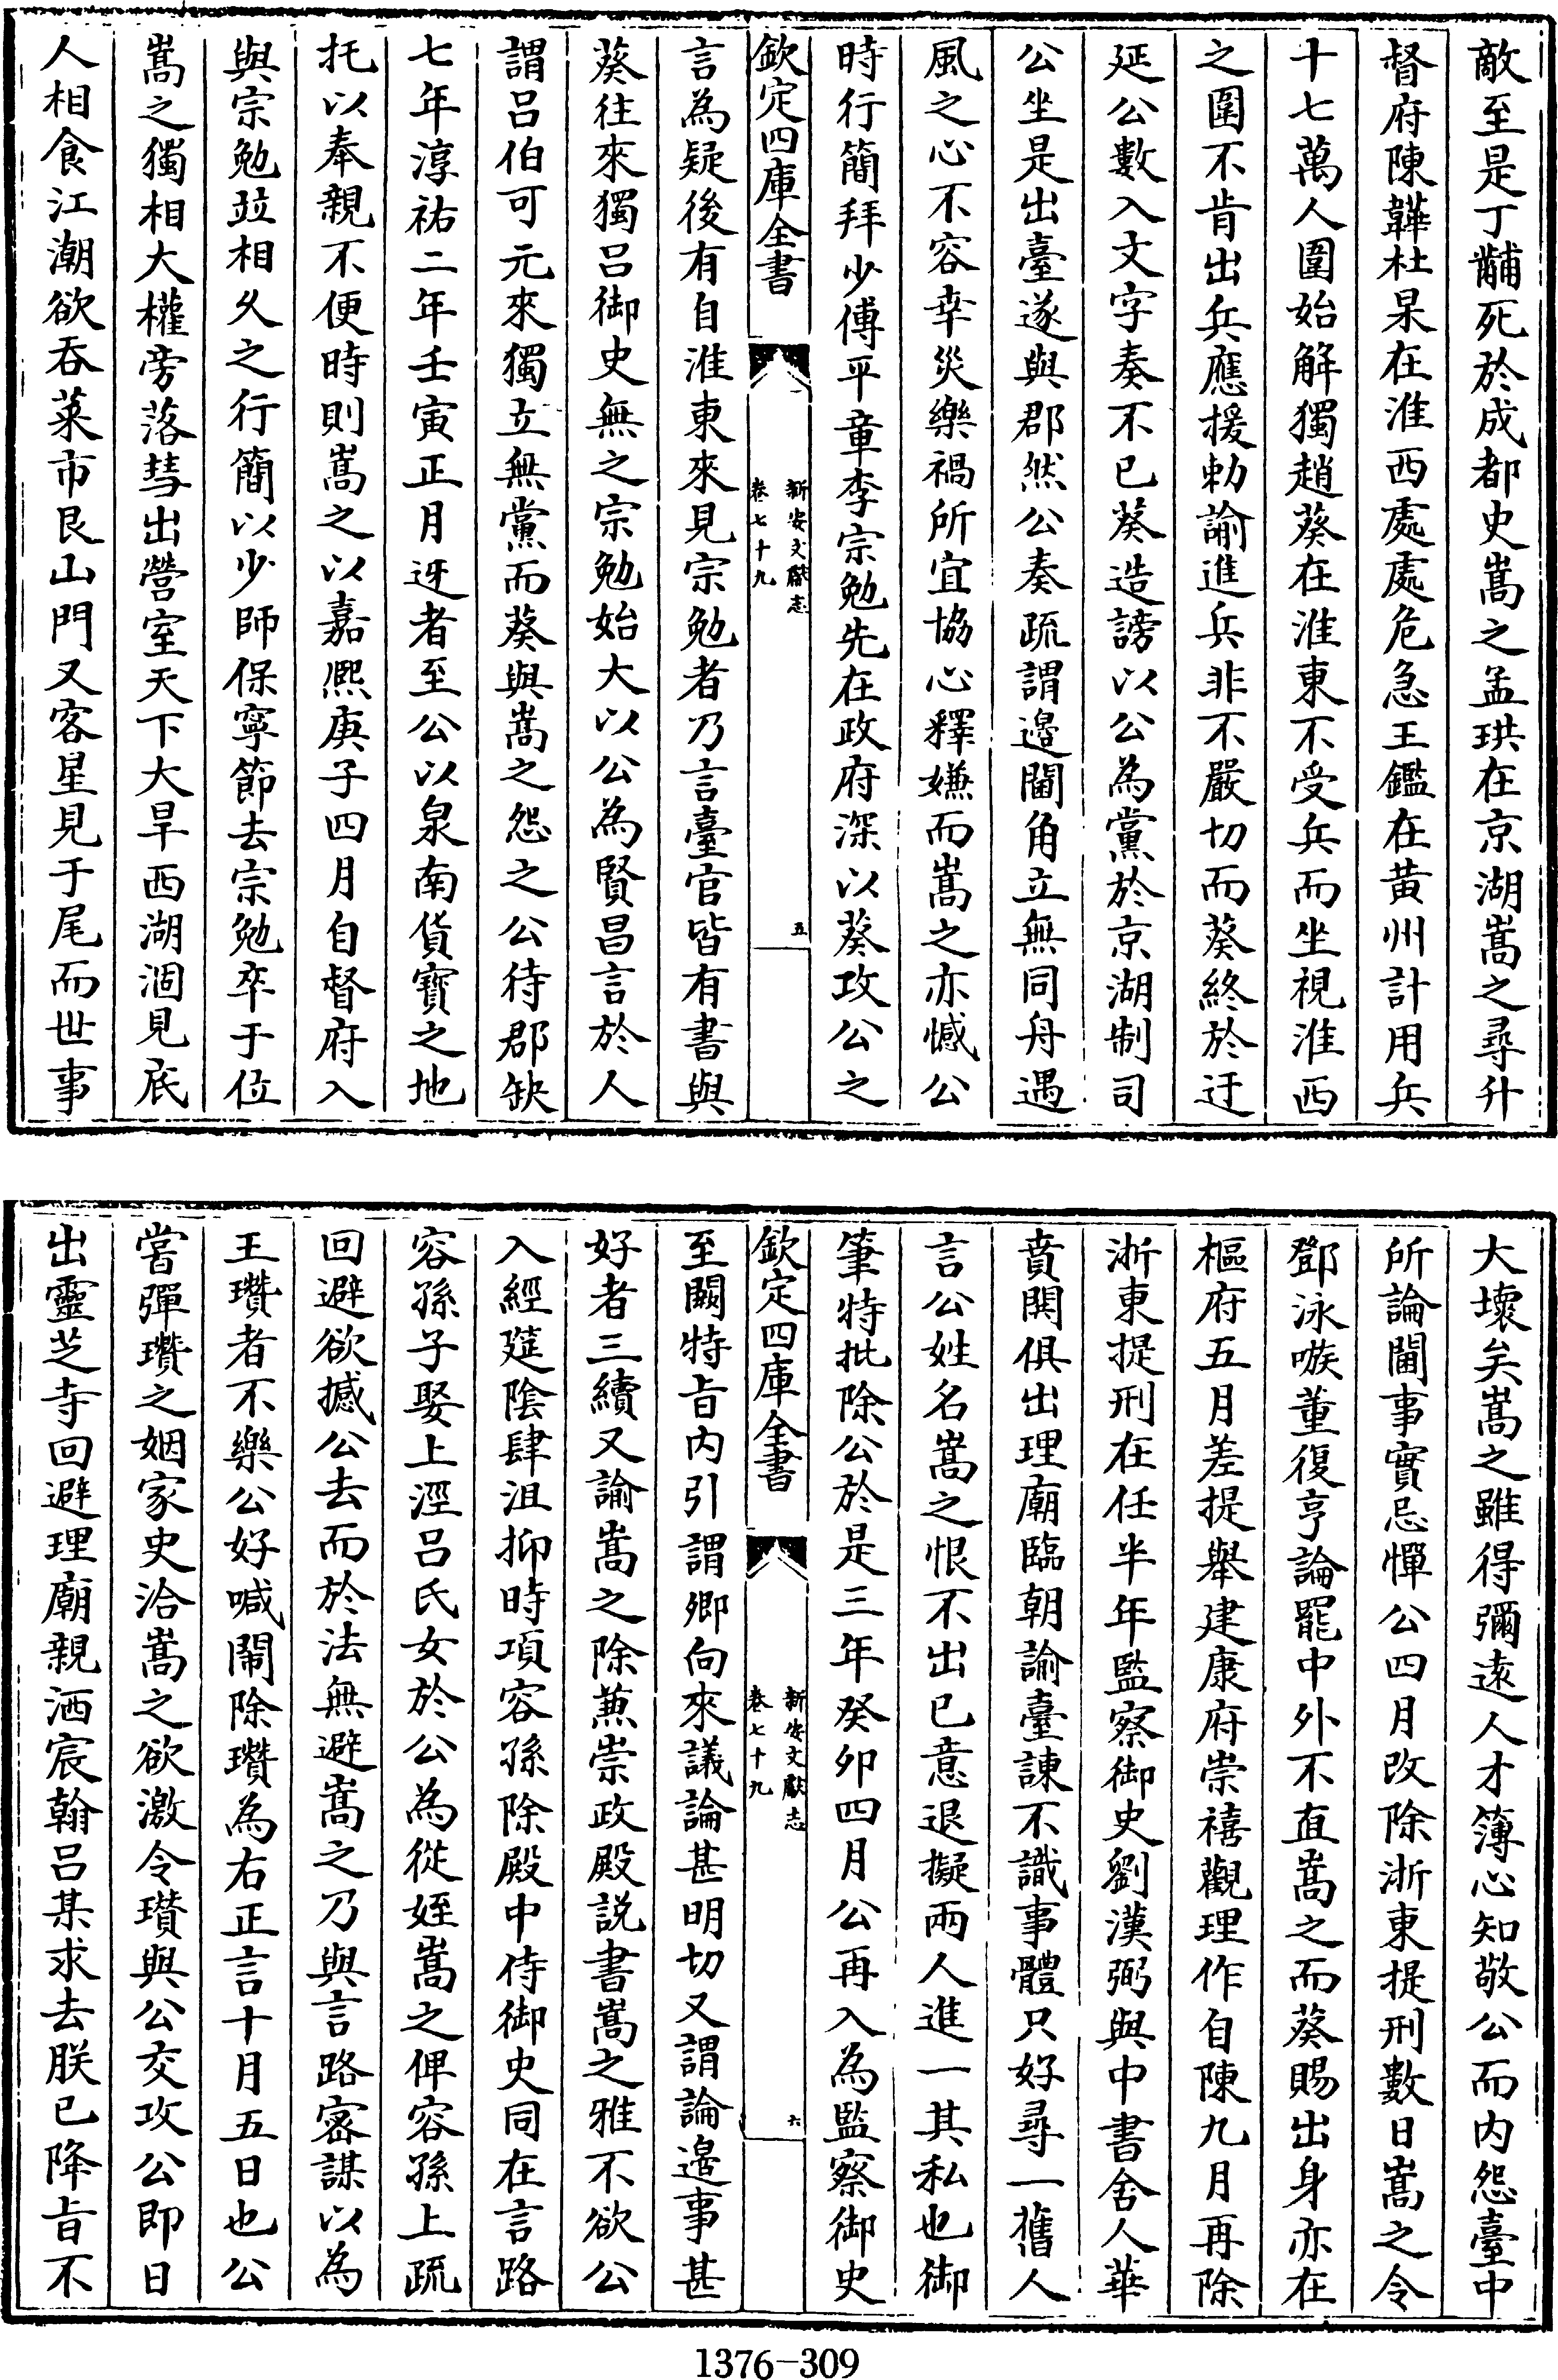 敵至是丁黼死於成都史嵩之孟珙在京湖嵩之尋升
督府陳韡杜杲在淮西處處危急王鑑在黄州計用兵
十七萬人圍始解獨趙葵在淮東不受兵而坐視淮西
之圍不肯出兵應援勅諭進兵非不嚴切而葵終於迂
延公數入文字奏不已葵造謗以公為黨於京湖制司
公坐是出臺遂與郡然公奏疏謂邉閫角立無同舟遇
風之心不容幸災樂禍所宜協心釋嫌而嵩之亦憾公
時行簡拜少傅平章李宗勉先在政府深以葵攻公之
欽定四庫全書
新安文獻志
卷七十九
五
言為疑後有自淮東來見宗勉者乃言臺官皆有書與
葵往來獨吕御史無之宗勉始大以公為賢昌言於人
謂吕伯可元來獨立無黨而葵與嵩之怨之公待郡缺
七年淳祐二年壬寅正月迓者至公以泉南貨寳之地
托以奉親不便時則嵩之以嘉熈庚子四月自督府入
與宗勉竝相乆之行簡以少師保寧節去宗勉卒于位
嵩之獨相大權旁落彗出營室天下大旱西湖涸見底
人相食江潮欲吞菜市艮山門又客星見于尾而世事
大壞矣嵩之雖得彌逺人才簿心知敬公而内怨臺中
所論閫事實忌憚公四月改除浙東提刑數日嵩之令
鄧泳嗾董復亨論罷中外不直嵩之而葵賜出身亦在
樞府五月差提舉建康府崇禧觀理作自陳九月再除
浙東提刑在任半年監察御史劉漢弼與中書舍人華
賁閧俱出理廟臨朝諭臺諫不識事體只好尋一舊人
言公姓名嵩之恨不出已意退擬兩人進一其私也御
筆特批除公於是三年癸卯四月公再入為監察御史
欽定四庫全書
新安文獻志
卷七十九
六
至闕特㫖内引謂卿向來議論甚明切又謂論邉事甚
好者三續又諭嵩之除兼崇政殿説書嵩之雅不欲公
入經筵隂肆沮抑時項容孫除殿中侍御史同在言路
容孫子娶上涇吕氏女於公為從姪嵩之俾容孫上疏
回避欲撼公去而於法無避嵩之乃與言路宻謀以為
王瓚者不樂公好喊閙除瓚為右正言十月五日也公
嘗彈瓚之姻家史洽嵩之欲激令瓚與公交攻公即日
出靈芝寺回避理廟親洒宸翰吕某求去朕已降㫖不
1376-309